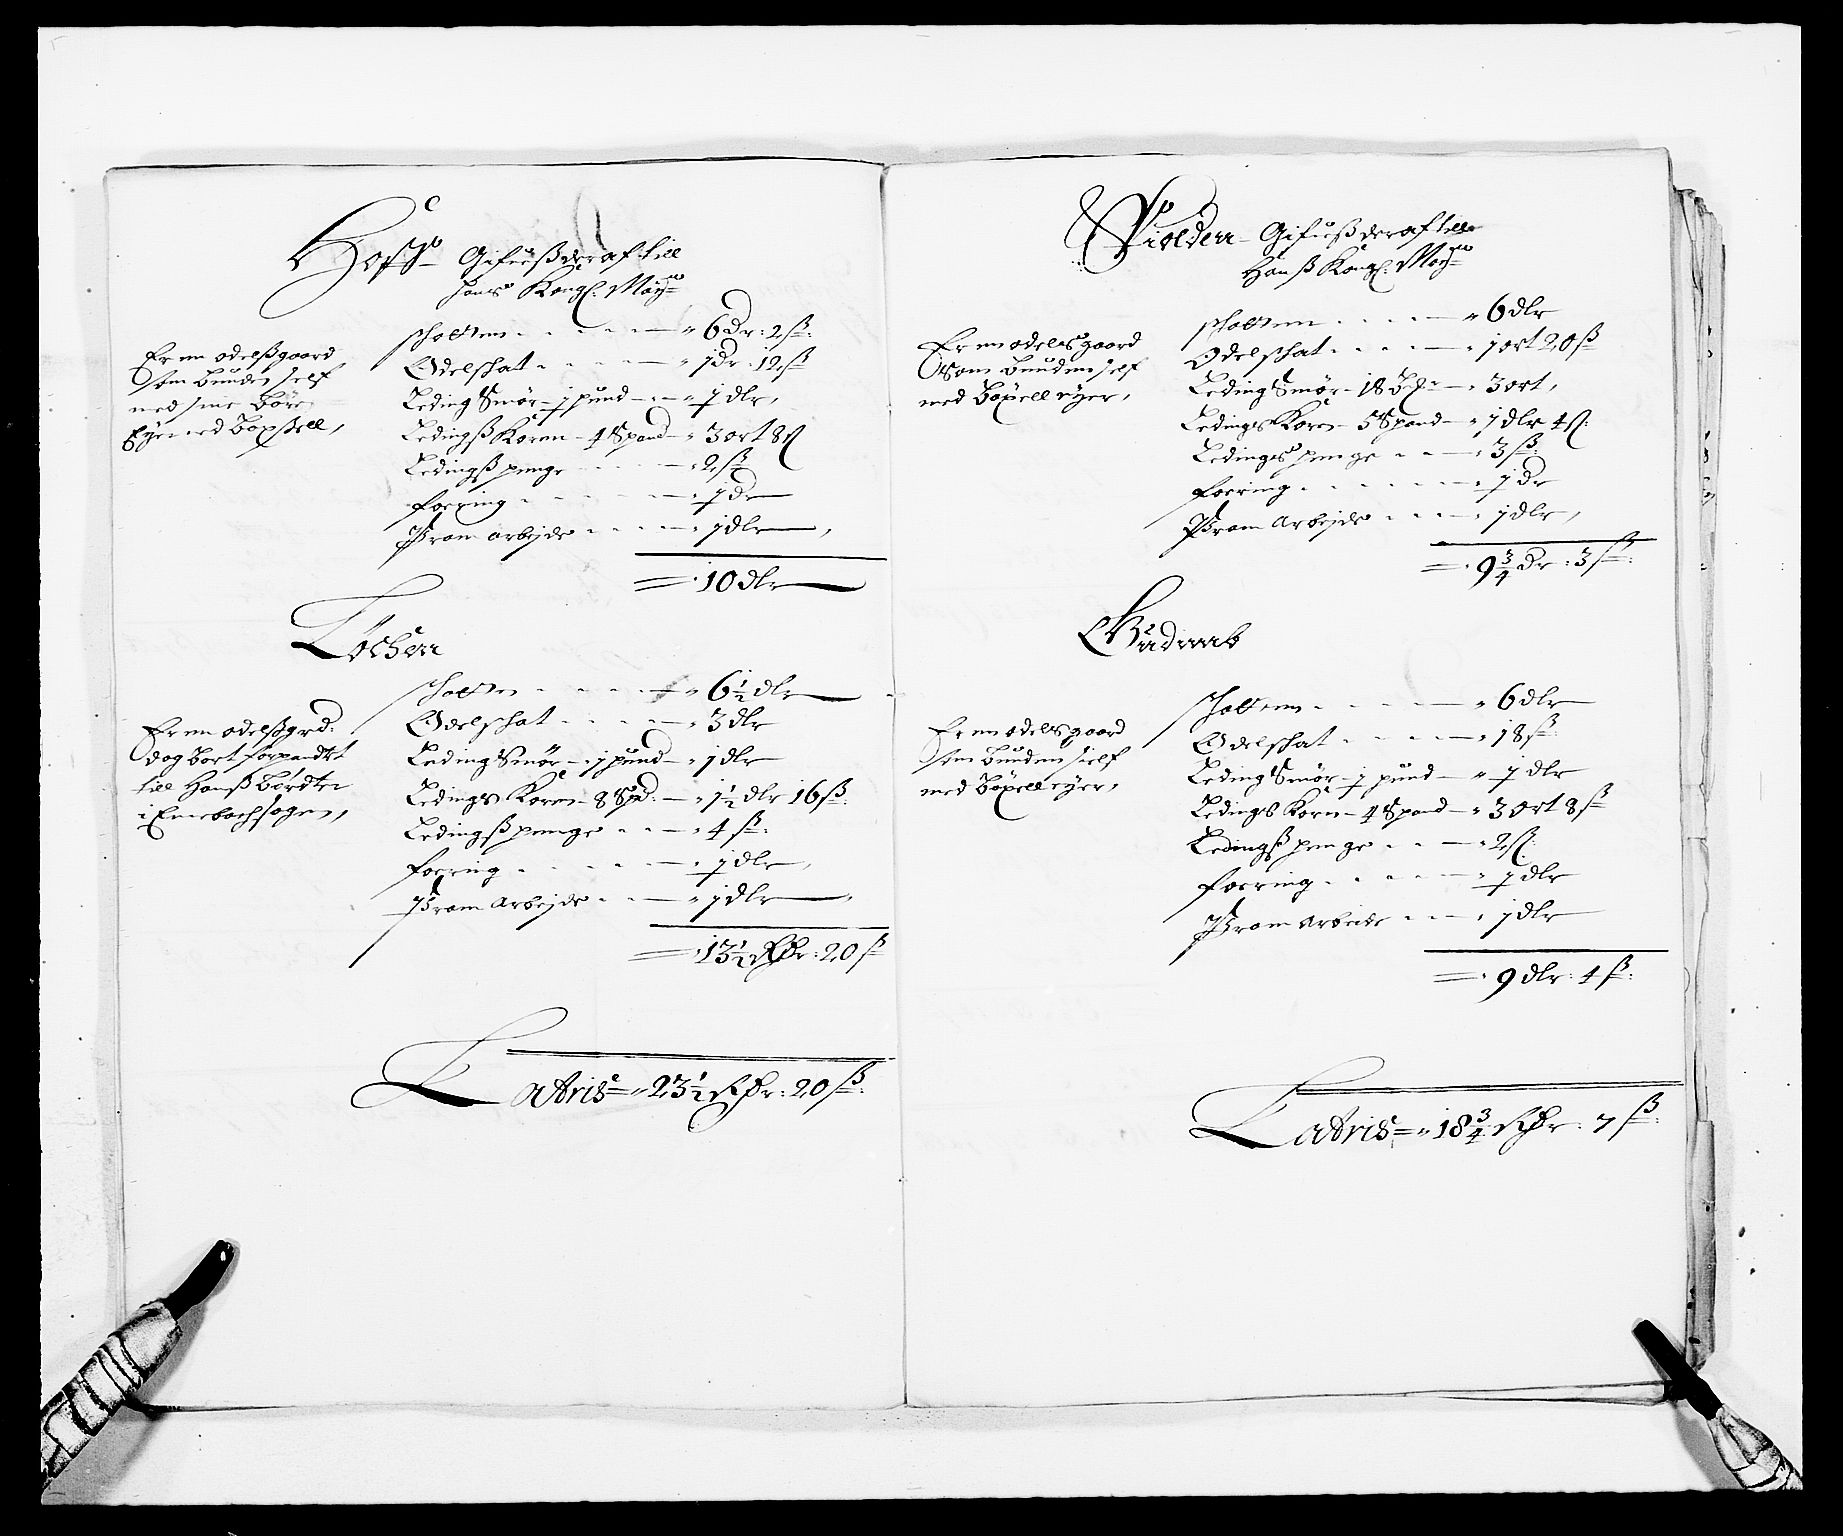 Hoff Gifuis der af till
hans Kongl: May:
Er en odelsgaard
som bunden self
med sine Børn
Eyer med bøxsell,
schatten - 6 dr: 2 ß:
Odelschat - 1 dr: 12 ß
Leding Smør - 1 pund - 1 dlr,
Ledingß Koren - 4 Spand - 3 ort 8 ß
Ledingß penge - 2 ß
foering - 1 dr
Pram arbejde - 1 dlr,
10 dlr
Locheren
Er en odelßgrd:
dog bort forpandtet
till Hanß
i Enebach sogen,
schatten - 6½ dlr
Odelschat - 3 dlr
Leding Smør - 1 pund - 1 dlr
Ledings Koren - 8 Spd: - 1½ dlr 16 ß:
Ledingß penge - 4 ß:
foering - 1 dlr,
Pram Arbejde - 1 dlr
13½ Rdr: 20 ß
Lateris 23½ Rdr: 20 ß:
Violden Gifuis der af till
Hanß Kongl: May:
Er en odelsgaard
som bunden self
med bøxell eyer,
schatten - 6 dlr
Odelschat - 1 ort 20 ß
Leding Smør - 18 - 3 ort,
Ledings Koren - 5 Spand - 1 dlr 4 ß:
Ledings penge - 3 ß:
foering - 1 dr
Pram Arbejde - 1 dlr,
9¾ dr: 3 ß:
Er en odelsgaard
som bunden sielf
med bøxell eyer,
schatten - 6 dlr
Odelschat - 18 ß:
Leding Smør - 1 pund - 1 dlr
Ledings Koren - 4 Spand - 3 ort 8 ß
Ledingß penge - 2 ß:
foering - 1 dlr
Pram arbeide - 1 dlr
9 dlr: 4 ß:
Lateris 18¾ Rdr: 7 ß: